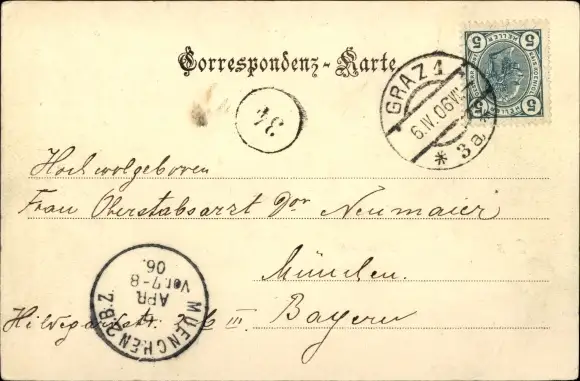 Correspondenz-Karte
5 5
5 5
HELLER HELLER
GRAZ 1
6.IV.06
* 3a *
34
Hochwolgeboren
Frau Oberstabsarzt Dor Neumaier
München.
Bayern
III
MUENCHEN 2.B.Z.
APR
Vor.7-8
06.